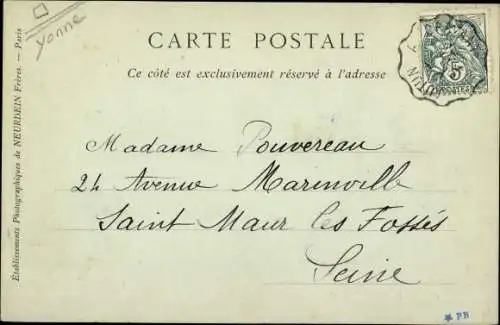 Yonne
CARTE POSTALE
Ce côté est exclusivement réservé à l'adresse
Madame Pouvereau
24 Avenue Marinville
Saint Maur les Fossés
Seine
Établissements Photographiques de NEURDEIN Frères. — Paris
5
PB